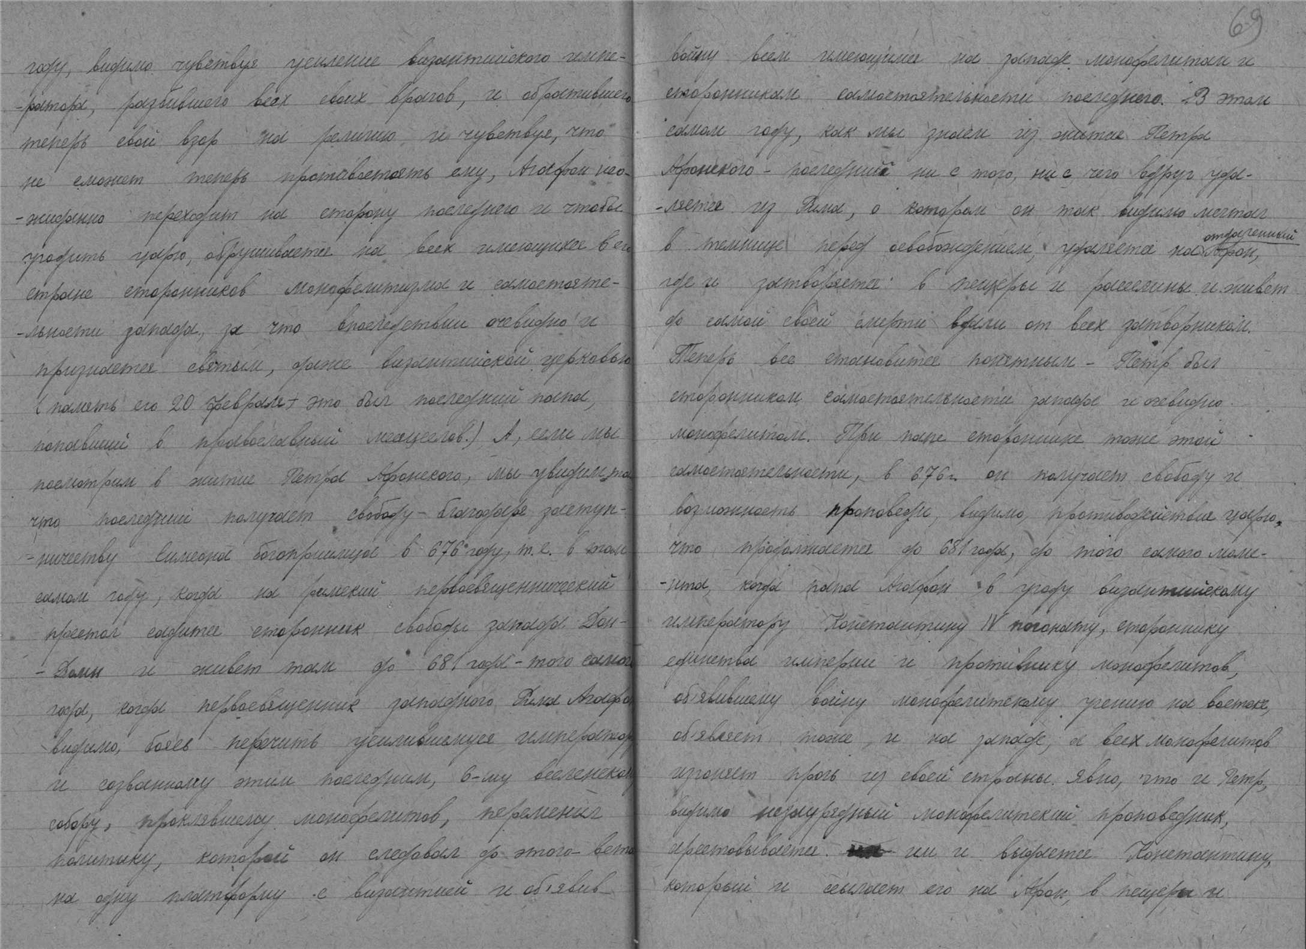 году, видимо чувствуя усиление византийского импе-
-ратора, разбившего всех своих врагов, и обратившего
теперь свой взор на религию и чувствуя, что
не сможет теперь противостоять ему, Агафон нео-
-жиданно переходит на сторону последнего и чтобы
угодить царю, обрушивается на всех имеющихся в его
стране сторонников монофелитизма и самостояте-
-льности запада, за что впоследствии очевидно и
признается святым, даже византийской церковью
(память его 20 февраля – это был последний папа,
попавший в православный месяцеслов.) А, если мы
посмотрим в житие Петра Афонского, мы увидим, что
что последний получает свободу – благодаря заступ-
-ничеству Симеона богоприимца в 676 году, т.е. в том
самом году, когда на римский первосвященнический
престол садится сторонник свободы запада Дон-
-Домн и живет там до 681 года – того самого
года, когда первосвященник западного Рима Агафон
видимо, боясь перечить усилившемуся императору
и созванному этим последним, 6-му вселенскому
собору, проклявшему монофелитов, переменил
политику, которой он следовал до этого встал
на одну платформу с византией и об'явив
69
войну всем имеющимся на западе монофелитам и
сторонникам самостоятельности последнего. В этом
самом году, как мы знаем из жития Петра
Афонского – последний ни с того, ни с чего вдруг уда-
-ляется из Рима, о котором он так видимо мечтал
в темнице перед освобождением, удаляется на отдаленный Афон,
где и затворяется в пещеры и расселины и живет
до самой своей смерти вдали от всех затворником.
Теперь все становится понятным – Петр был
сторонником самостоятельности запада и очевидно
монофелитом. При папе стороннике тоже этой
самостоятельности, в 676 г. он получает свободу и
возможность проповеди, видимо, противодействия царю,
что продолжается до 681 года, до того самого моме-
-нта, когда папа Агафон в угоду византийскому
императору Константину IV погонату, стороннику
единства империи и противнику монофелитов,
об'явившему войну монофелитскому учению на востоке,
об'являет тоже, и на западе, а всех монофелитов
изгоняет прочь из своей страны. Явно, что и Петр,
видимо незаурядный монофелитский проповедник,
арестовывается им и выдается Константину,
который и ссылает его на Афон, в пещеры и